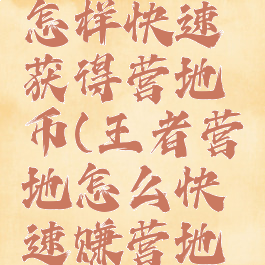 怎样快速
获得营地
币(王者营
地怎么快
速赚营地